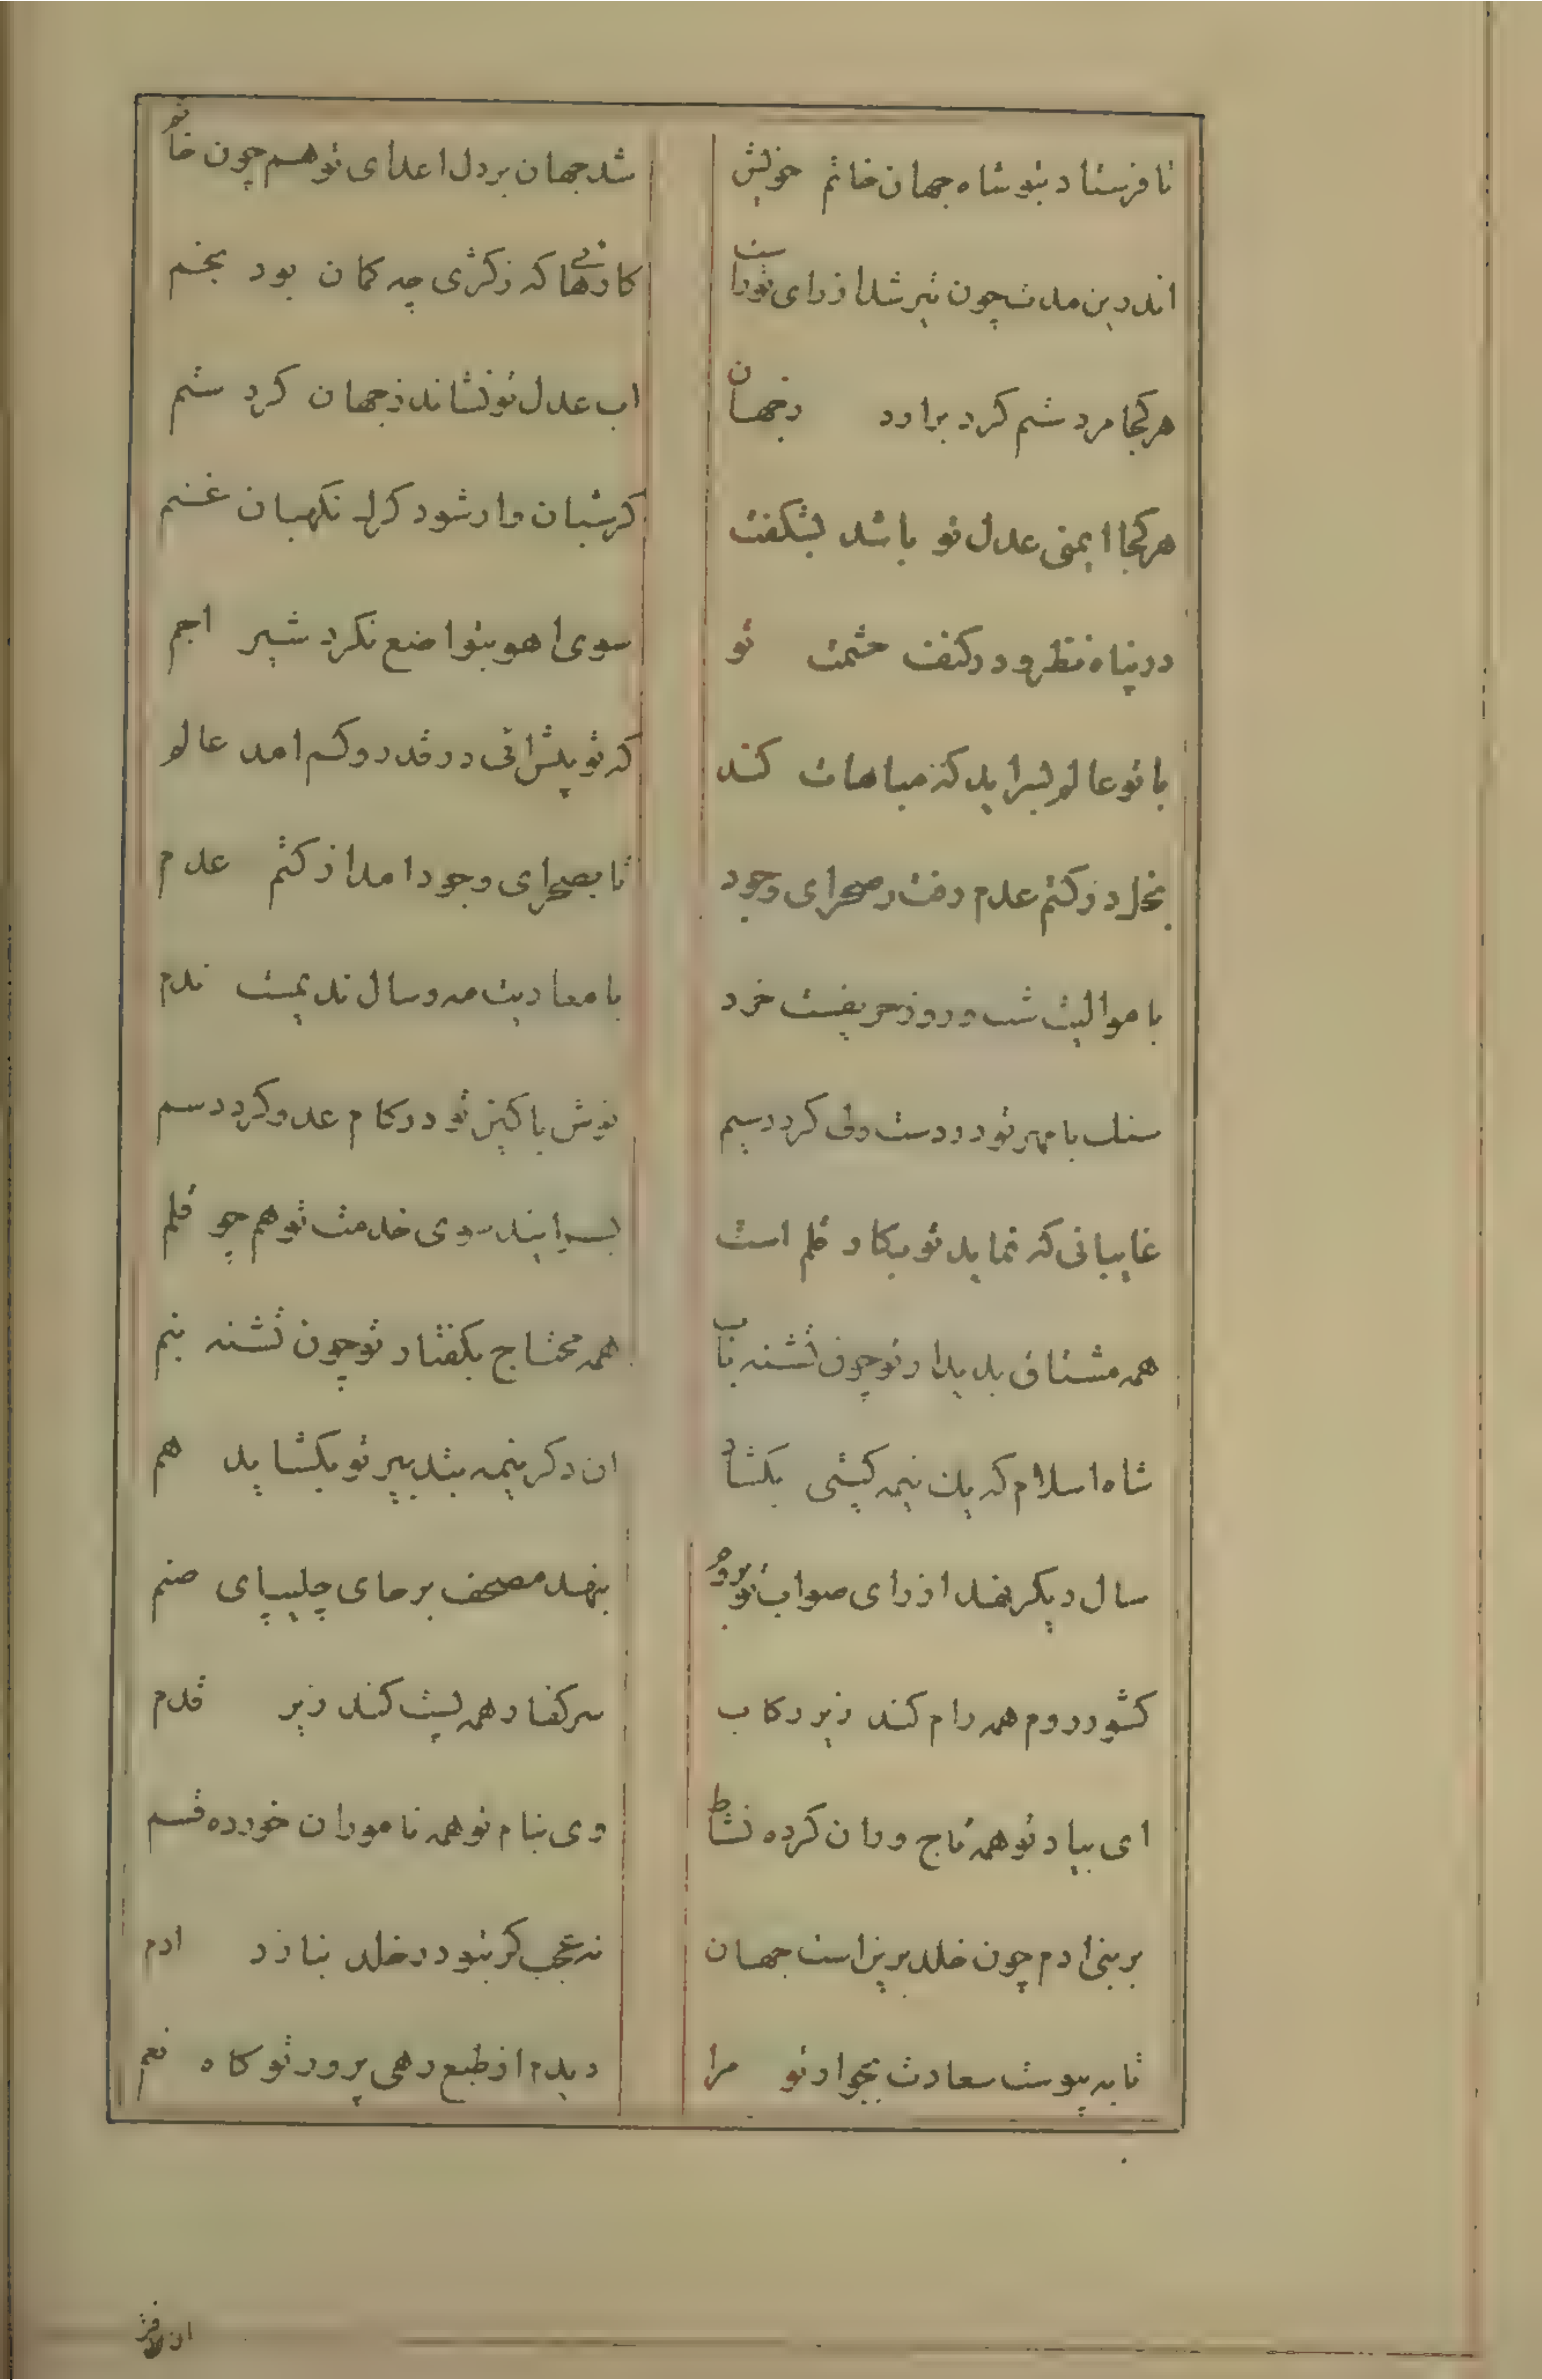 تا فرستاد بتو شاه جهان خاتم خویش شد جهان بر دل اعدای تو همچون خاتم
اندرین مدت چون تیر شد از رای تو راست کارهائی که ز کژی چه کمان بود بخم
هر کجا مرد ستم گرد برآورد ز جهان اب عدل تو نشاند ز جهان کرد ستم
هر کجا ایمنی عدل تو باشد نشکفت کر شبان وار شود کرک نکهبان غنم
در پناه نظر و در کنف حشمت تو سوی اهو بتواضع نکرد شیر اجم
با تو عالم بسراید که مباهات کند که تو پیش اتی در قدر و کم امد عالم
بخل در کتم عدم رفت ز صحرای وجود تا بصحرای وجود امد از کتم عدم
با موالیت شب و روز حریفست خرد با معادیت مه و سال ندیمست ندم
سنک با مهر تو در دست ولی کردد سیم نوش با کین تو در کام عدو کردد سم
غایبانی که نماید تو بکار قلم است بسر ایند سوی خدمت تو همچو قلم
همه مشتاق بدیدار تو چون تشنه باب همه محتاج بکفتار تو چون تشنه بنم
شاه اسلام که یک نیمه کیتی بکشاد ان دکر نیمه بتدبیر تو بکشاید هم
سال دیکر نهد از رای صواب تو بروم بنهد مصحف بر جای چلیپای صنم
کشور روم همه رام کند زیر رکاب سر کفار همه پست کند زیر قدم
ای بیاد تو همه تاج وران کرده نشاط وی بنام تو همه ناموران خورده قسم
بر بنی ادم چون خلد برین است جهان نه عجب کر بتو در خلد بنازد ادم
تا به پیوست سعادت بجوار تو مرا دیدم از طبع رهی پرور تو کاه نعم